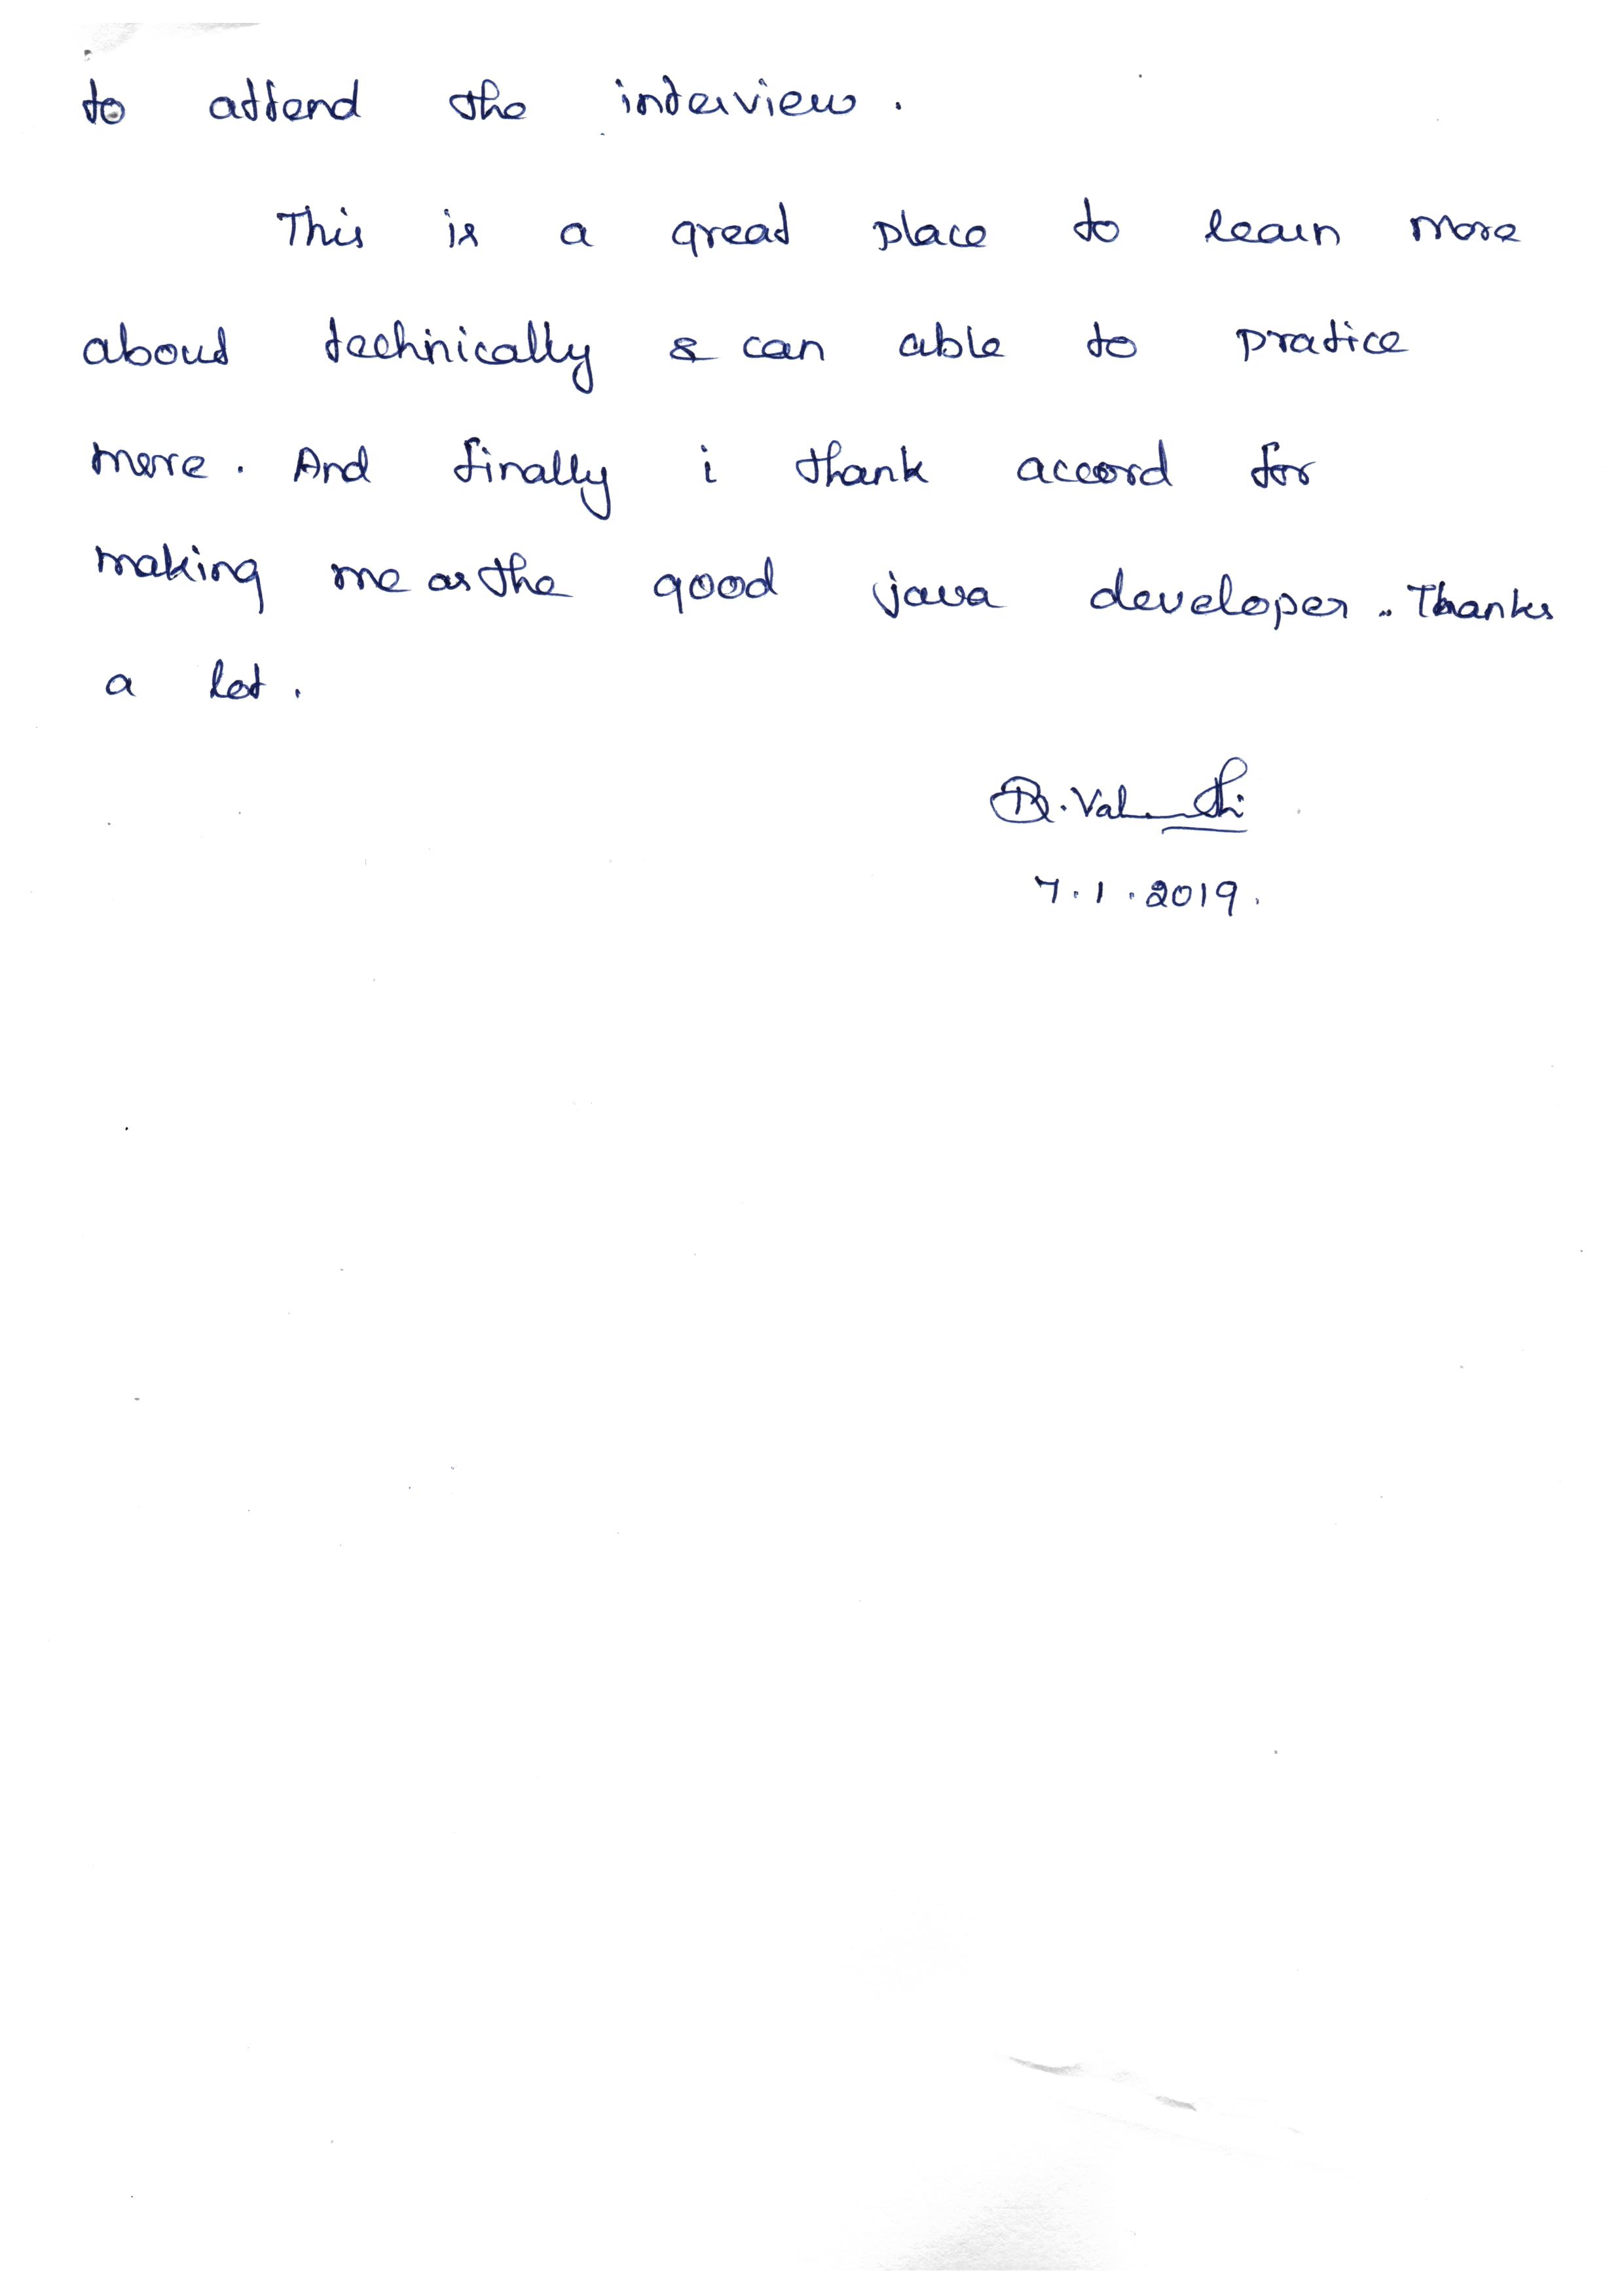 to attend the interview.
This is a great place to learn more
about technically & can able to pratice
more. And finally i thank accord for
making me as the good java developer.. Thanks
a lot.
7.1.2019.